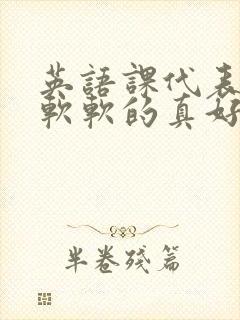 英語課代表
軟軟的真好
半卷殘篇